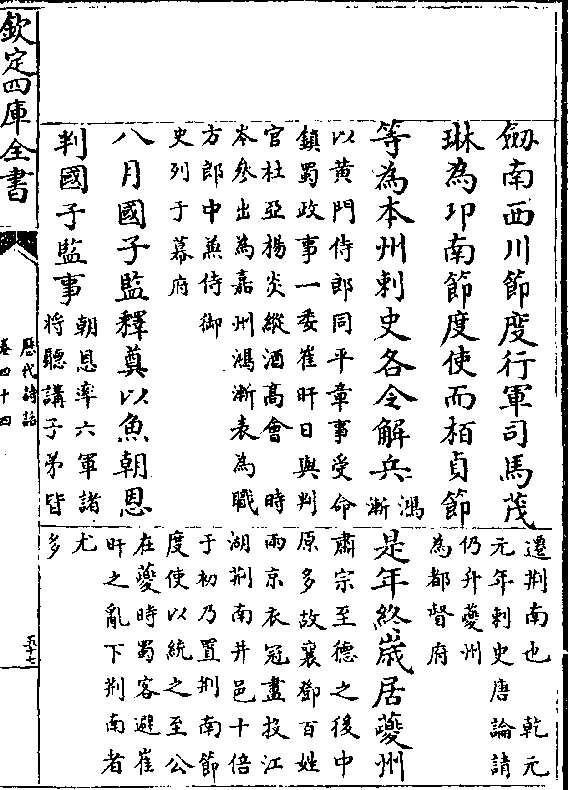 劒南西川節度行軍司馬茂
琳為卭南節度使而栢貞節
等為本州刺史各令解兵鴻漸
以黃門侍郎同平章事受命
鎮蜀政事一委崔旰日與判
官杜亞楊炎縱酒高會 時
岑參出為嘉州鴻漸表為職
方郎中兼侍御
史列于幕府
八月國子監釋奠以魚朝恩
判國子監事
朝恩率六軍諸
將聽講子弟皆
遷荆南也 乾元
元年刺史唐論請
仍升夔州
為都督府
是年終歲居夔州
肅宗至德之後中
原多故襄鄧百姓
兩京衣冠盡投江
湖荆南井邑十倍
于初乃置荆南節
度使以統之至公
在夔時蜀客避崔
旰之亂下荆南者
尤
多
欽定四庫全書
歷代詩話
卷四十四
五十七